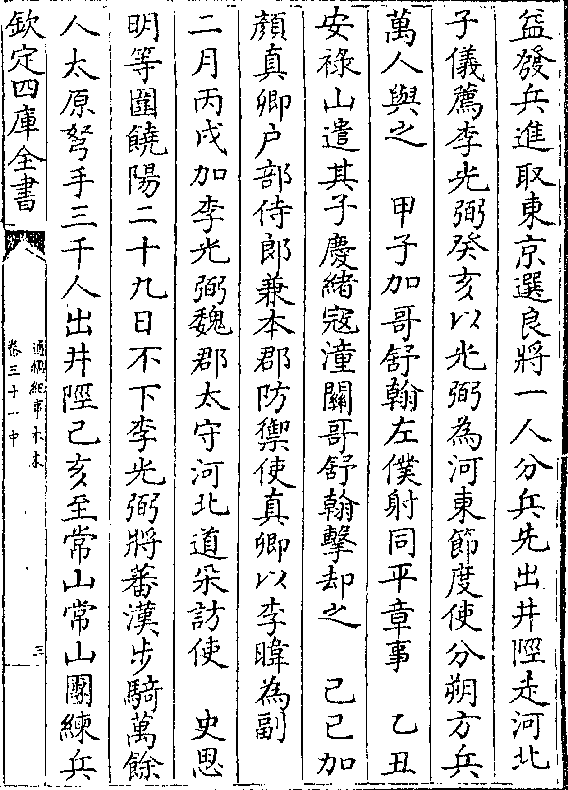 益發兵進取東京選良將一人分兵先出井陘走河北
子儀薦李光弼癸亥以光弼為河東節度使分朔方兵
萬人與之　甲子加哥舒翰左僕射同平章事　乙丑
安祿山遣其子慶緒寇潼關哥舒翰擊却之　己巳加
顏真卿户部侍郎兼本郡防禦使真卿以李暐為副
二月丙戌加李光弼魏郡太守河北道采訪使　史思
明等圍饒陽二十九日不下李光弼將蕃漢步騎萬餘
人太原弩手三千人出井陘己亥至常山常山團練兵
欽定四庫全書
通鑑紀事本末
卷三十一中
三